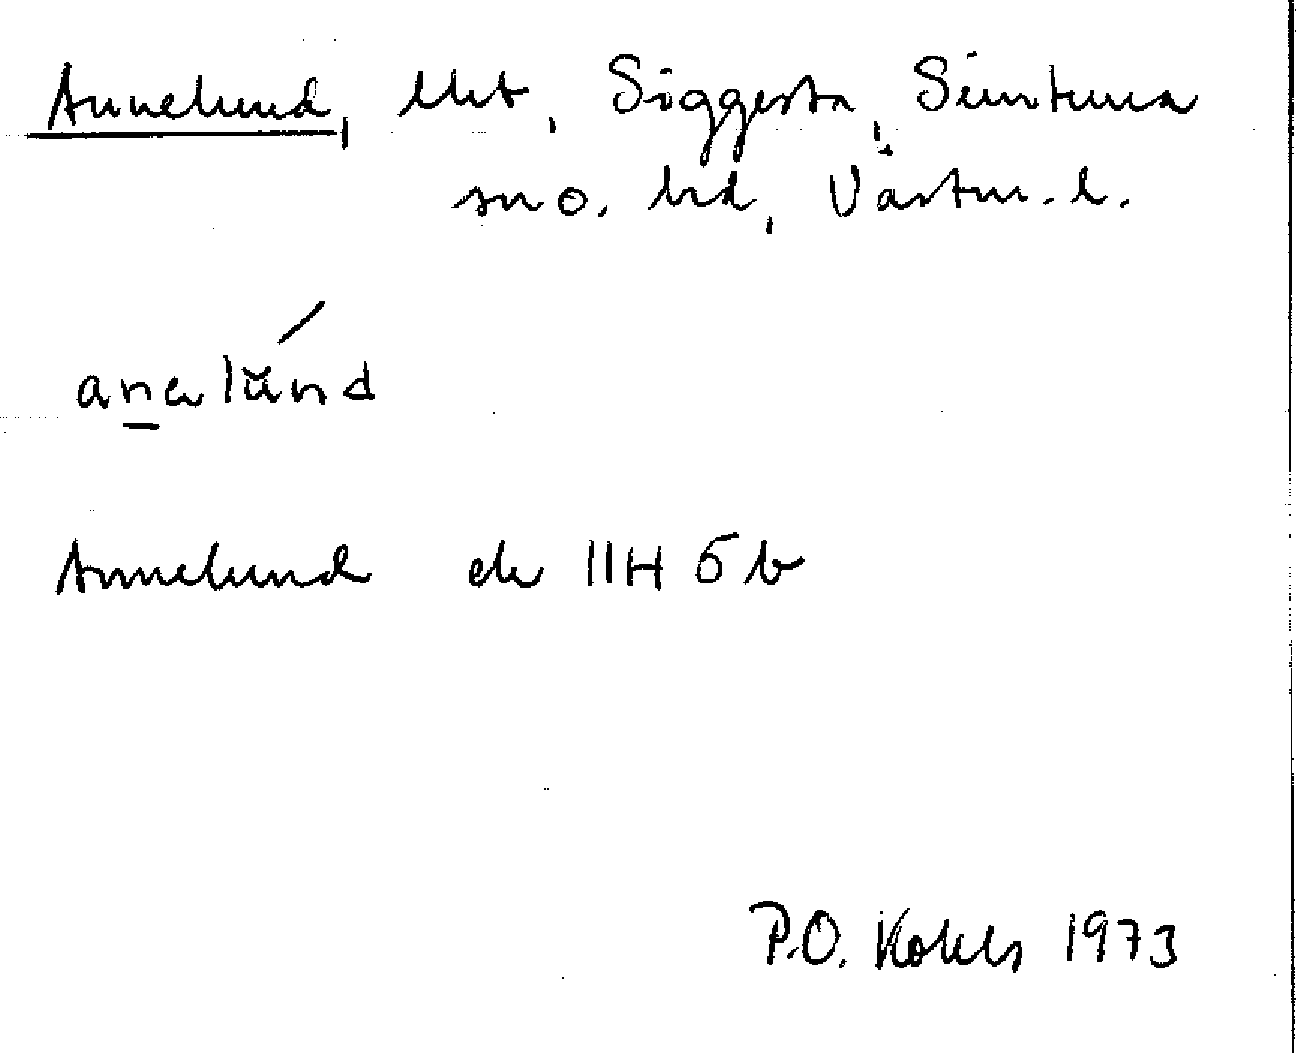 Annelund, lht, Siggesta, Simtuna
sn o. hd, Västm. l.
anɘlŭnd
Annelund ek 11H 5b
P.O. 1973